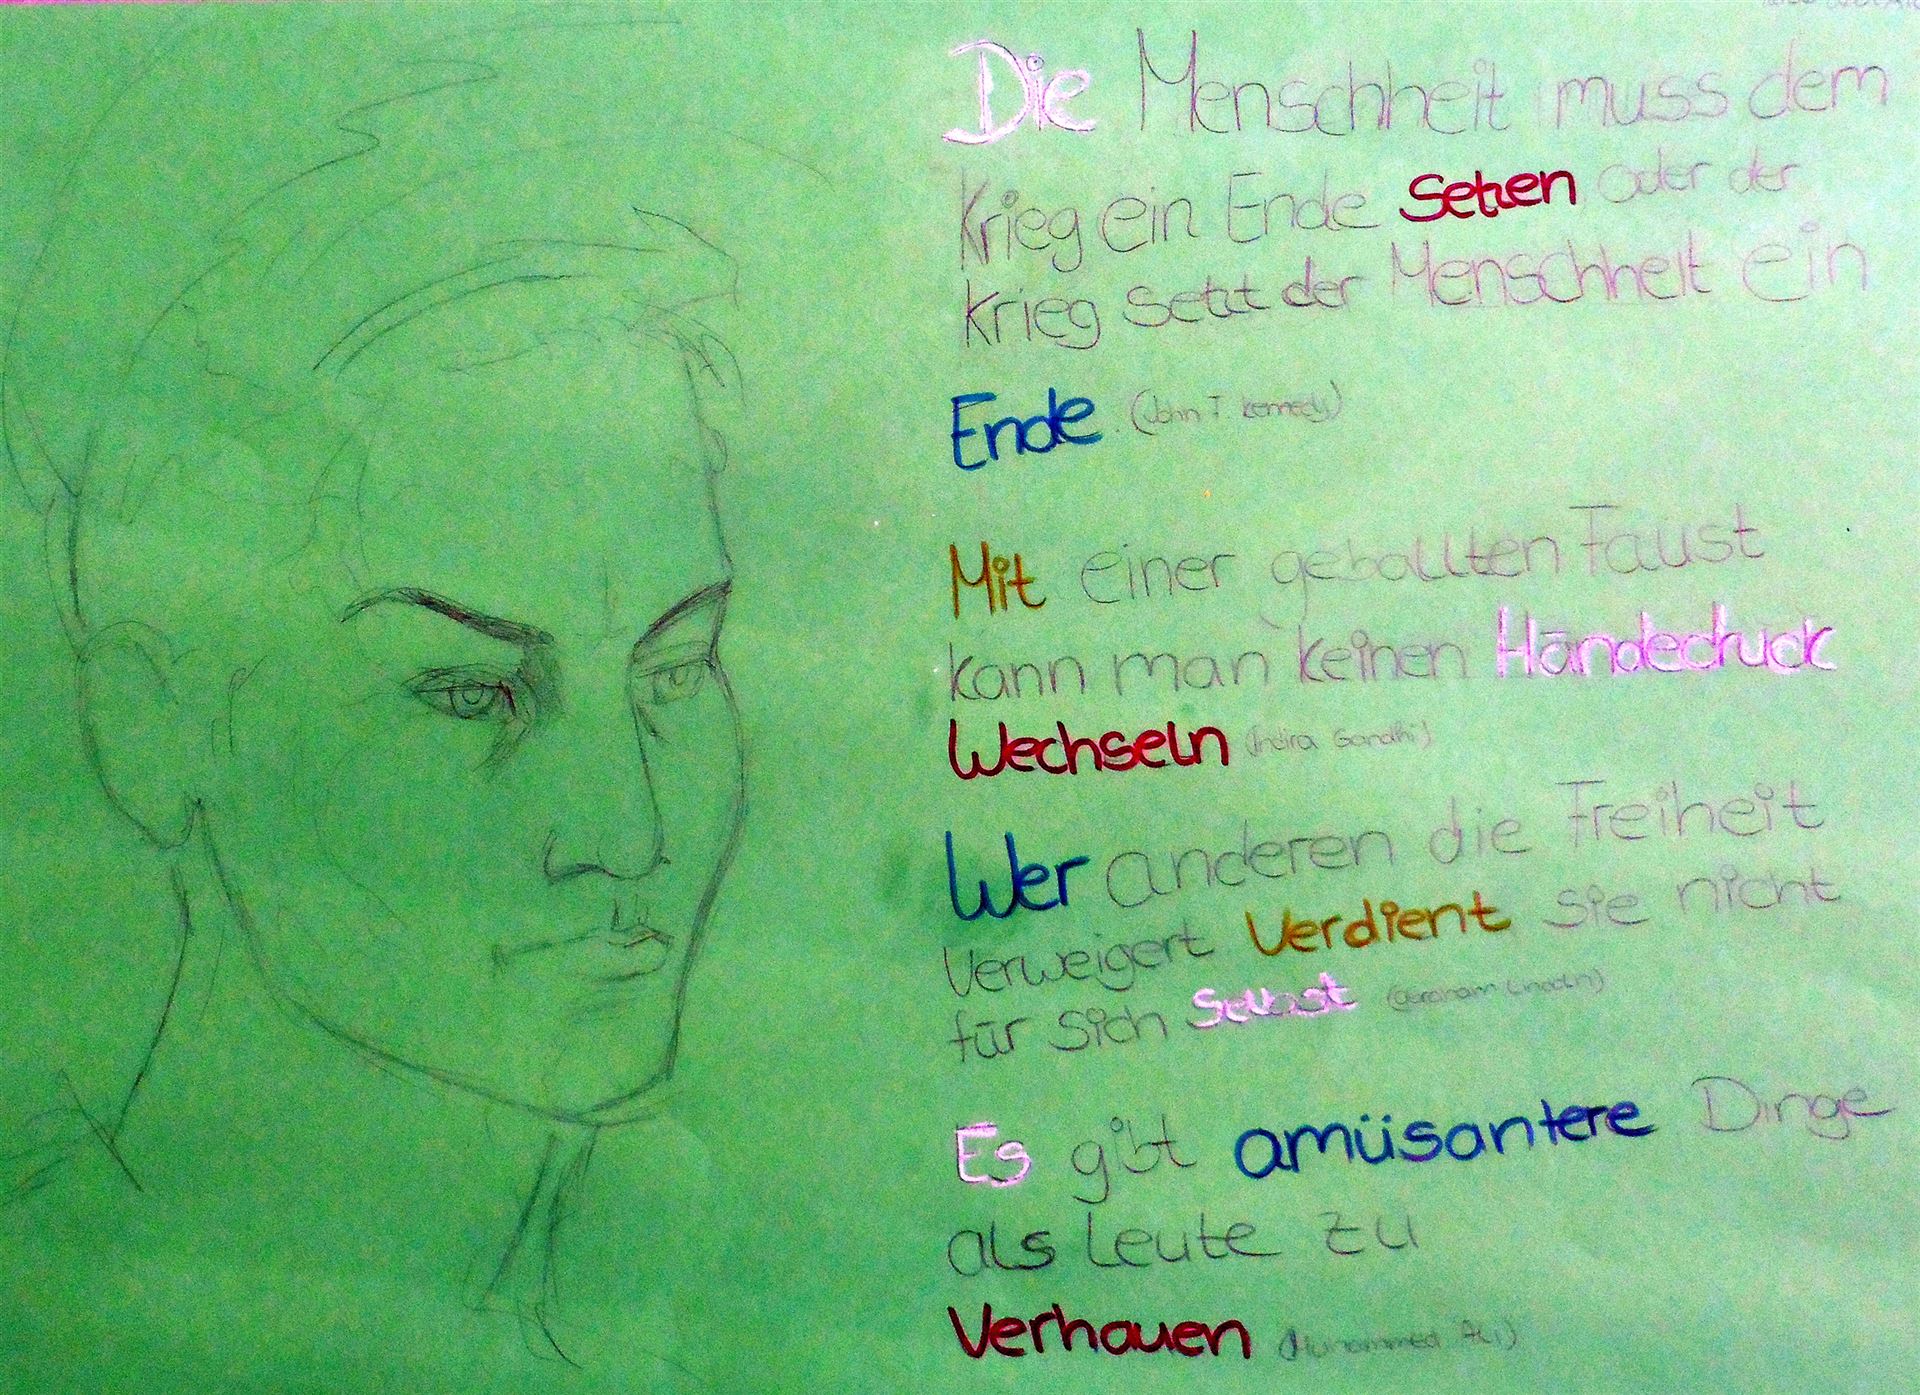 Die Menschheit muss dem
Krieg ein Ende Setzen oder der
Krieg Setzt der Menschheit ein
Ende (John T. Kennedy)
Mit einer geballten Faust
kann man keinen Händedruck
Wechseln (Indira Gandhi)
Wer anderen die Freiheit
Verweigert Verdient sie nicht
für Sich Selbst (Abraham Lincoln)
Es gibt amüsantere Dinge
als Leute zu
Verhauen (Muhammed Ali)